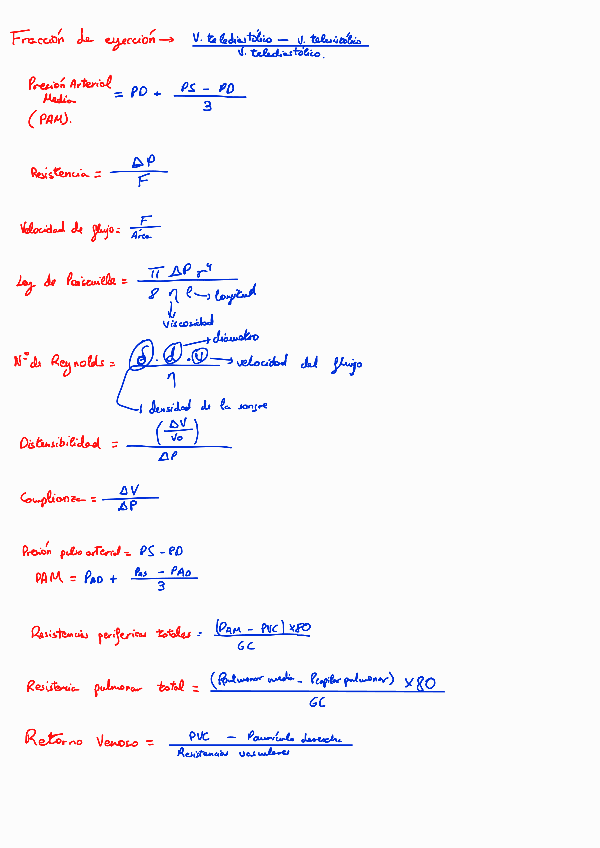 Fracción de eyección → V. telediastólico − V. telesistólico
V. telediastólico.
Presión Arterial
Media = PD + PS − PD
(PAM). 3
Resistencia = ΔP
F
Velocidad de flujo = F
Área
Ley de = π ΔP r⁴
8 η l → longitud
viscosidad
→ diámetro
Nº de Reynolds = δ . d . v → velocidad del flujo
η
→ densidad de la sangre
Distensibilidad = (ΔV
Vo)
ΔP
Complianza = ΔV
ΔP
Presión pulso arterial = PS − PD
PAM = PAD + PAS − PAD
3
Resistencias periféricas totales = (PAM − PVC) x80
GC
Resistencia pulmonar total = (Pulmonar media − Pcapilar pulmonar) x80
GC
Retorno Venoso = PVC − Paurícula derecha
Resistencias vasculares